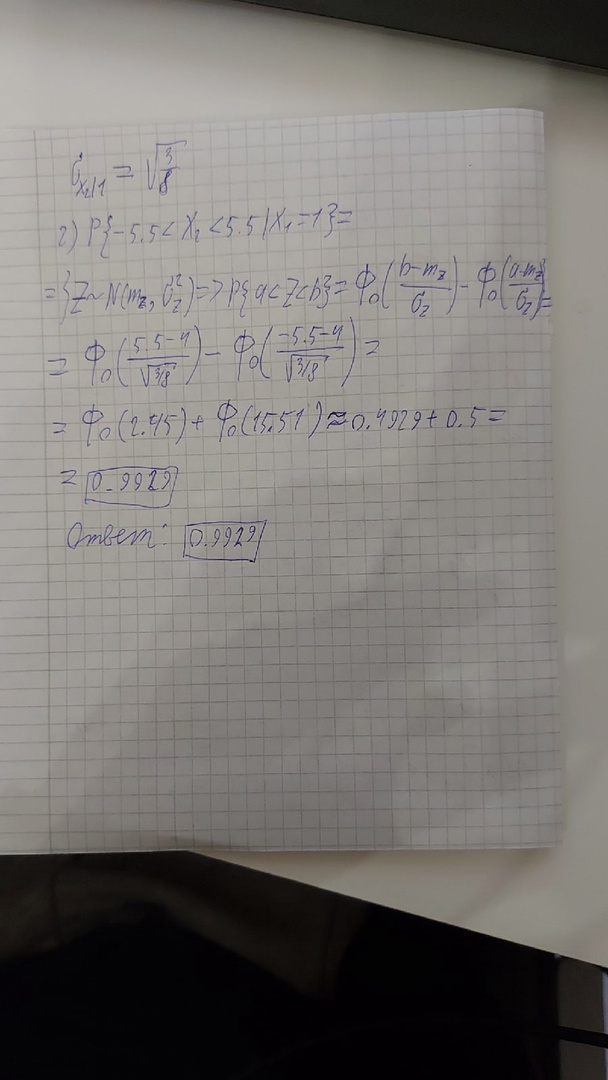 σ_{X₂|1} = √(3/8)
2) P{-5.5 < X₂ < 5.5 | X₁ = 1} =
= {Z ~ N(m_z, σ_z²) => P{a < Z < b} = Φ₀((b-m_z)/σ_z) - Φ₀((a-m_z)/σ_z) =
= Φ₀((5.5-4)/√(3/8)) - Φ₀((-5.5-4)/√(3/8)) =
= Φ₀(2.45) + Φ₀(15.51) ≈ 0.4929 + 0.5 =
= 0.9929
Ответ: 0.9929